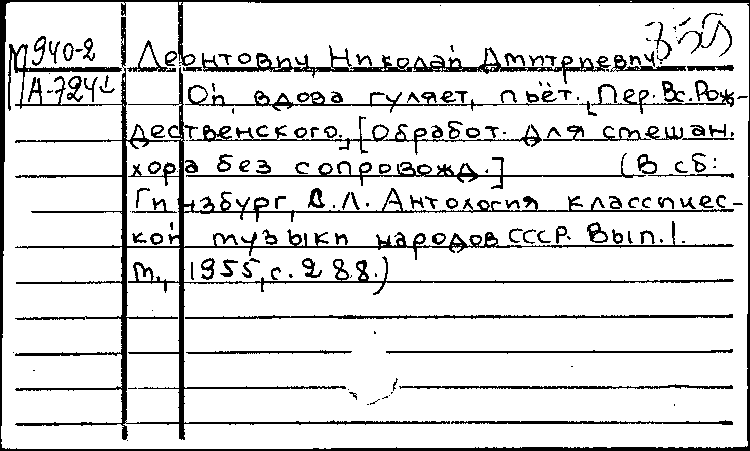 М940-2 Леонтович, Николай Дмитриевич.
А-724
Ой, вдова гуляет, пьёт. [Пер. Вс. Рож-
дественского.] [Обработ. для смешан.
хора без сопровожд.] (В сб:
Гинзбург, С.Л. Антология классичес-
кой музыки народов СССР. Вып. I.
М., 1955, с. 288.)